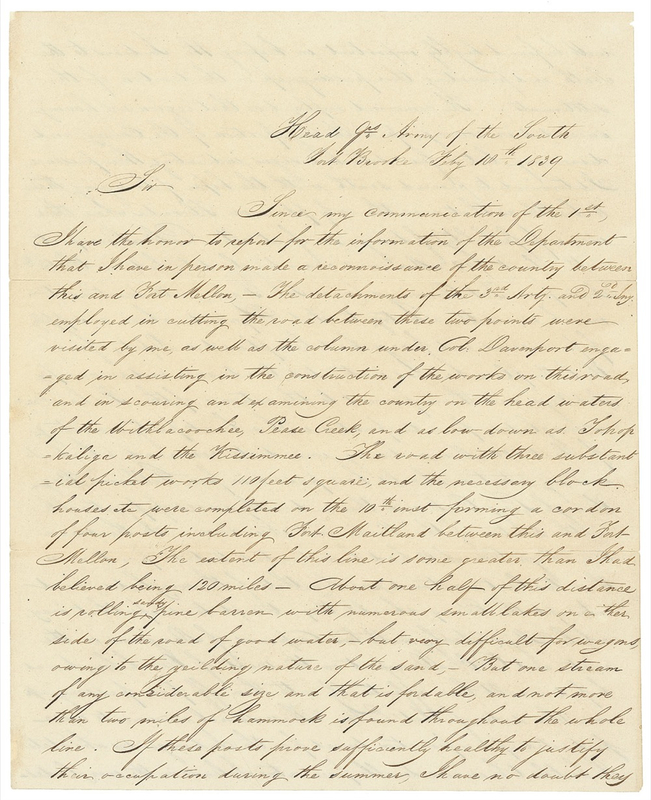 Head Qrs Army of the South
Fort Brooke Feby 18th 1839
Sir
Since my communication of the 1st,
I have the honor to report for the information of the Department
that I have in person made a reconnoissance of the country between
this and Fort Mellon, — The detachments of the 3rd Arty. and 2nd Iny.
employed in cutting the road between these two points were
visited by me, as well as the column under, Col. Davenport enga=
=ged in assisting in the construction of the works on this road,
and in scouring and examining the country on the head waters
of the Withlacoochee, Pease Creek, and as low down as Tohop
=kaliga and the Kissimmee. The road with three substant
=ial picket works 110 feet square, and the necessary block
houses etc were completed on the 10th inst forming a cordon
of four posts including Fort Maitland between this and Fort
Mellon, The extent of this line is some greater, than I had
believed being 120 miles — About one half of this distance
is rolling sandy pine barren with numerous small lakes on either
side of the road of good water, — but very difficult for wagons,
owing to the yeilding nature of the sand, — But one stream
of any considerable size and that is fordable, and not more
than two miles of hammock is found throughout the whole
line. If these posts prove sufficiently healthy to justify
their occupation during the summer, I have no doubt they